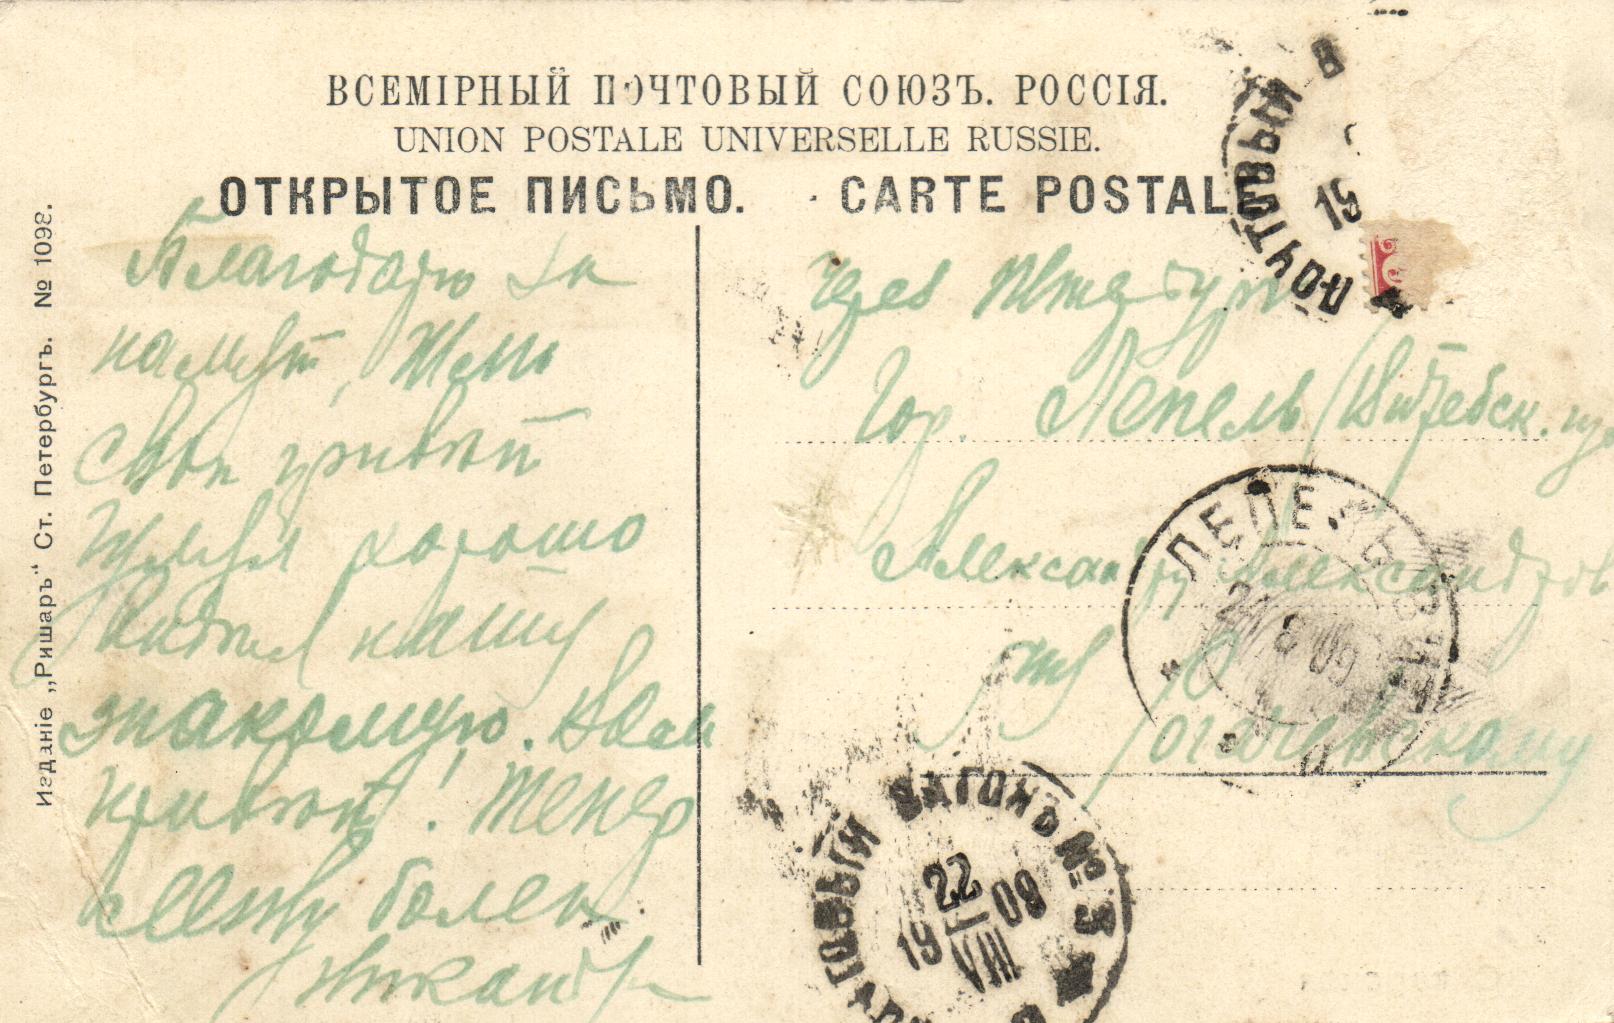 ВСЕМІРНЫЙ ПОЧТОВЫЙ СОЮЗЪ. РОССІЯ.
UNION POSTALE UNIVERSELLE RUSSIE.
ОТКРЫТОЕ ПИСЬМО. CARTE POSTALE
Издание „Ришаръ“ Ст. Петербургъ. № 1098.
Благодарю за
память,
Свои привет
хорошо
видел нашу
знакомую. Вам
привет! Теперь
я лежу болен
Никандр
через
Гор. Лепель (Витебск. гу
Александру Александров
ичу
ПОЧТОВЫЙ В
19
ЛЕПЕЛЬ
24 8 09
ПОЧТОВЫЙ ВАГОНЪ № 3
22
VIII
1909